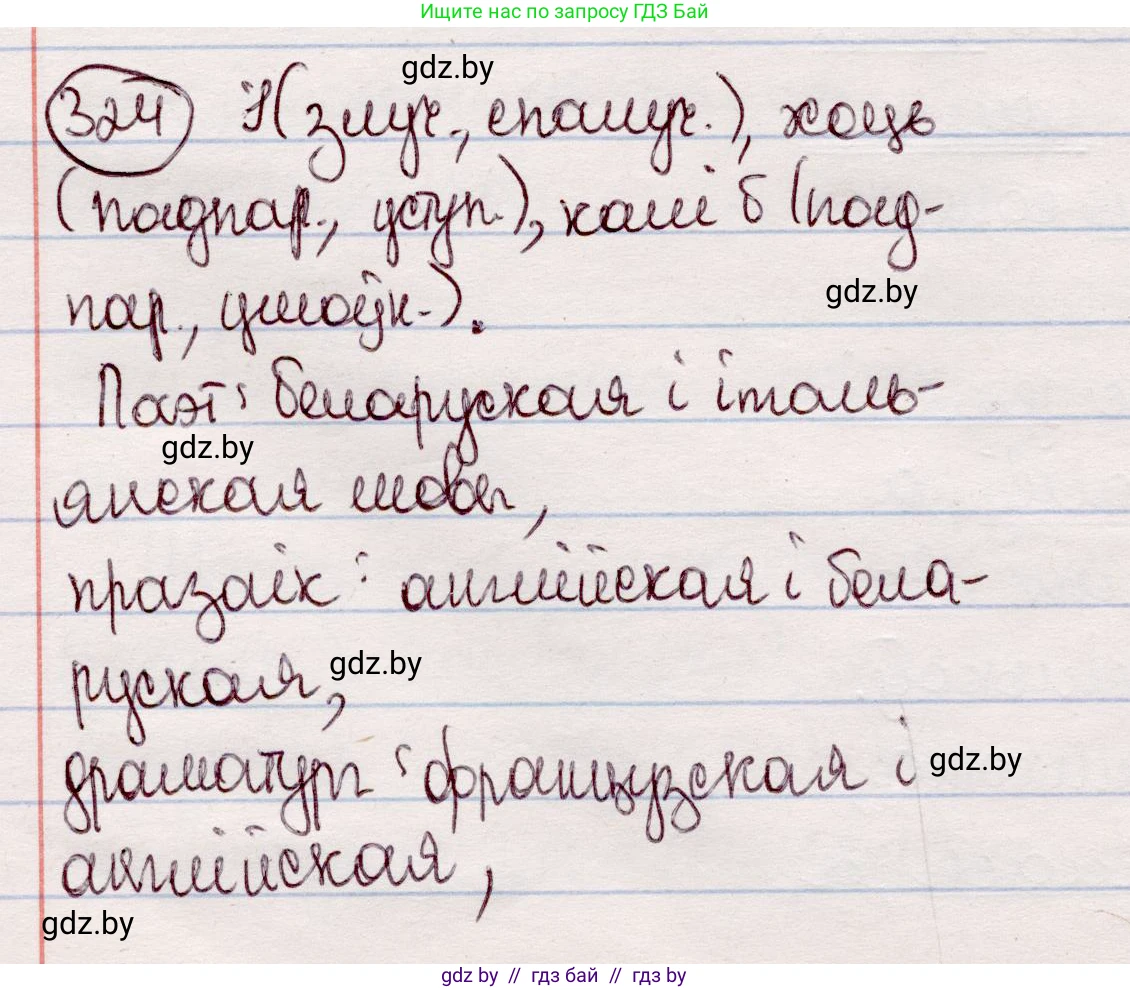 Ищите нас по запросу ГДЗ Бай
gdz.by
324 І (злуч., спалуч.), хоць
(падпар., уступ.), калі б (пад-
gdz.by
пар., умоўн.).
Паэт: беларуская і італь-
gdz.by
янская мовы,
празаік: англійская і бела-
руская,
gdz.by
драматург: французская і
gdz.by
англійская,
gdz.by
gdz.by // гдз бай // гдз by